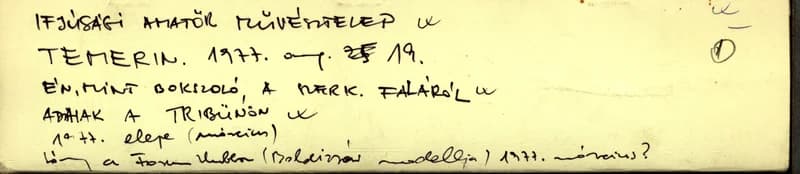 IFJÚSÁGI AMATŐR MŰVÉSZTELEP
TEMERIN. 1977. aug. 25 19.
①
ÉN, MINT BOKSZOLÓ, A MERK. FALÁRÓL
ADAIAK A TRIBÜNÖN
1977. eleje (március)
a Forum klubban (Boldizsár modellja) 1977. március?